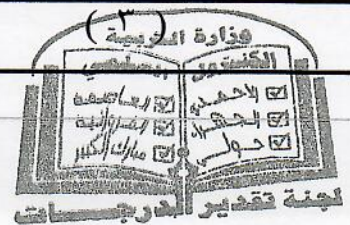 ( ٣ )
وزارة التربية
الكنترول العلمي
الأحمدي
الجهراء
حولي
العاصمة
الفروانية
مبارك الكبير
لجنة تقدير الدرجات